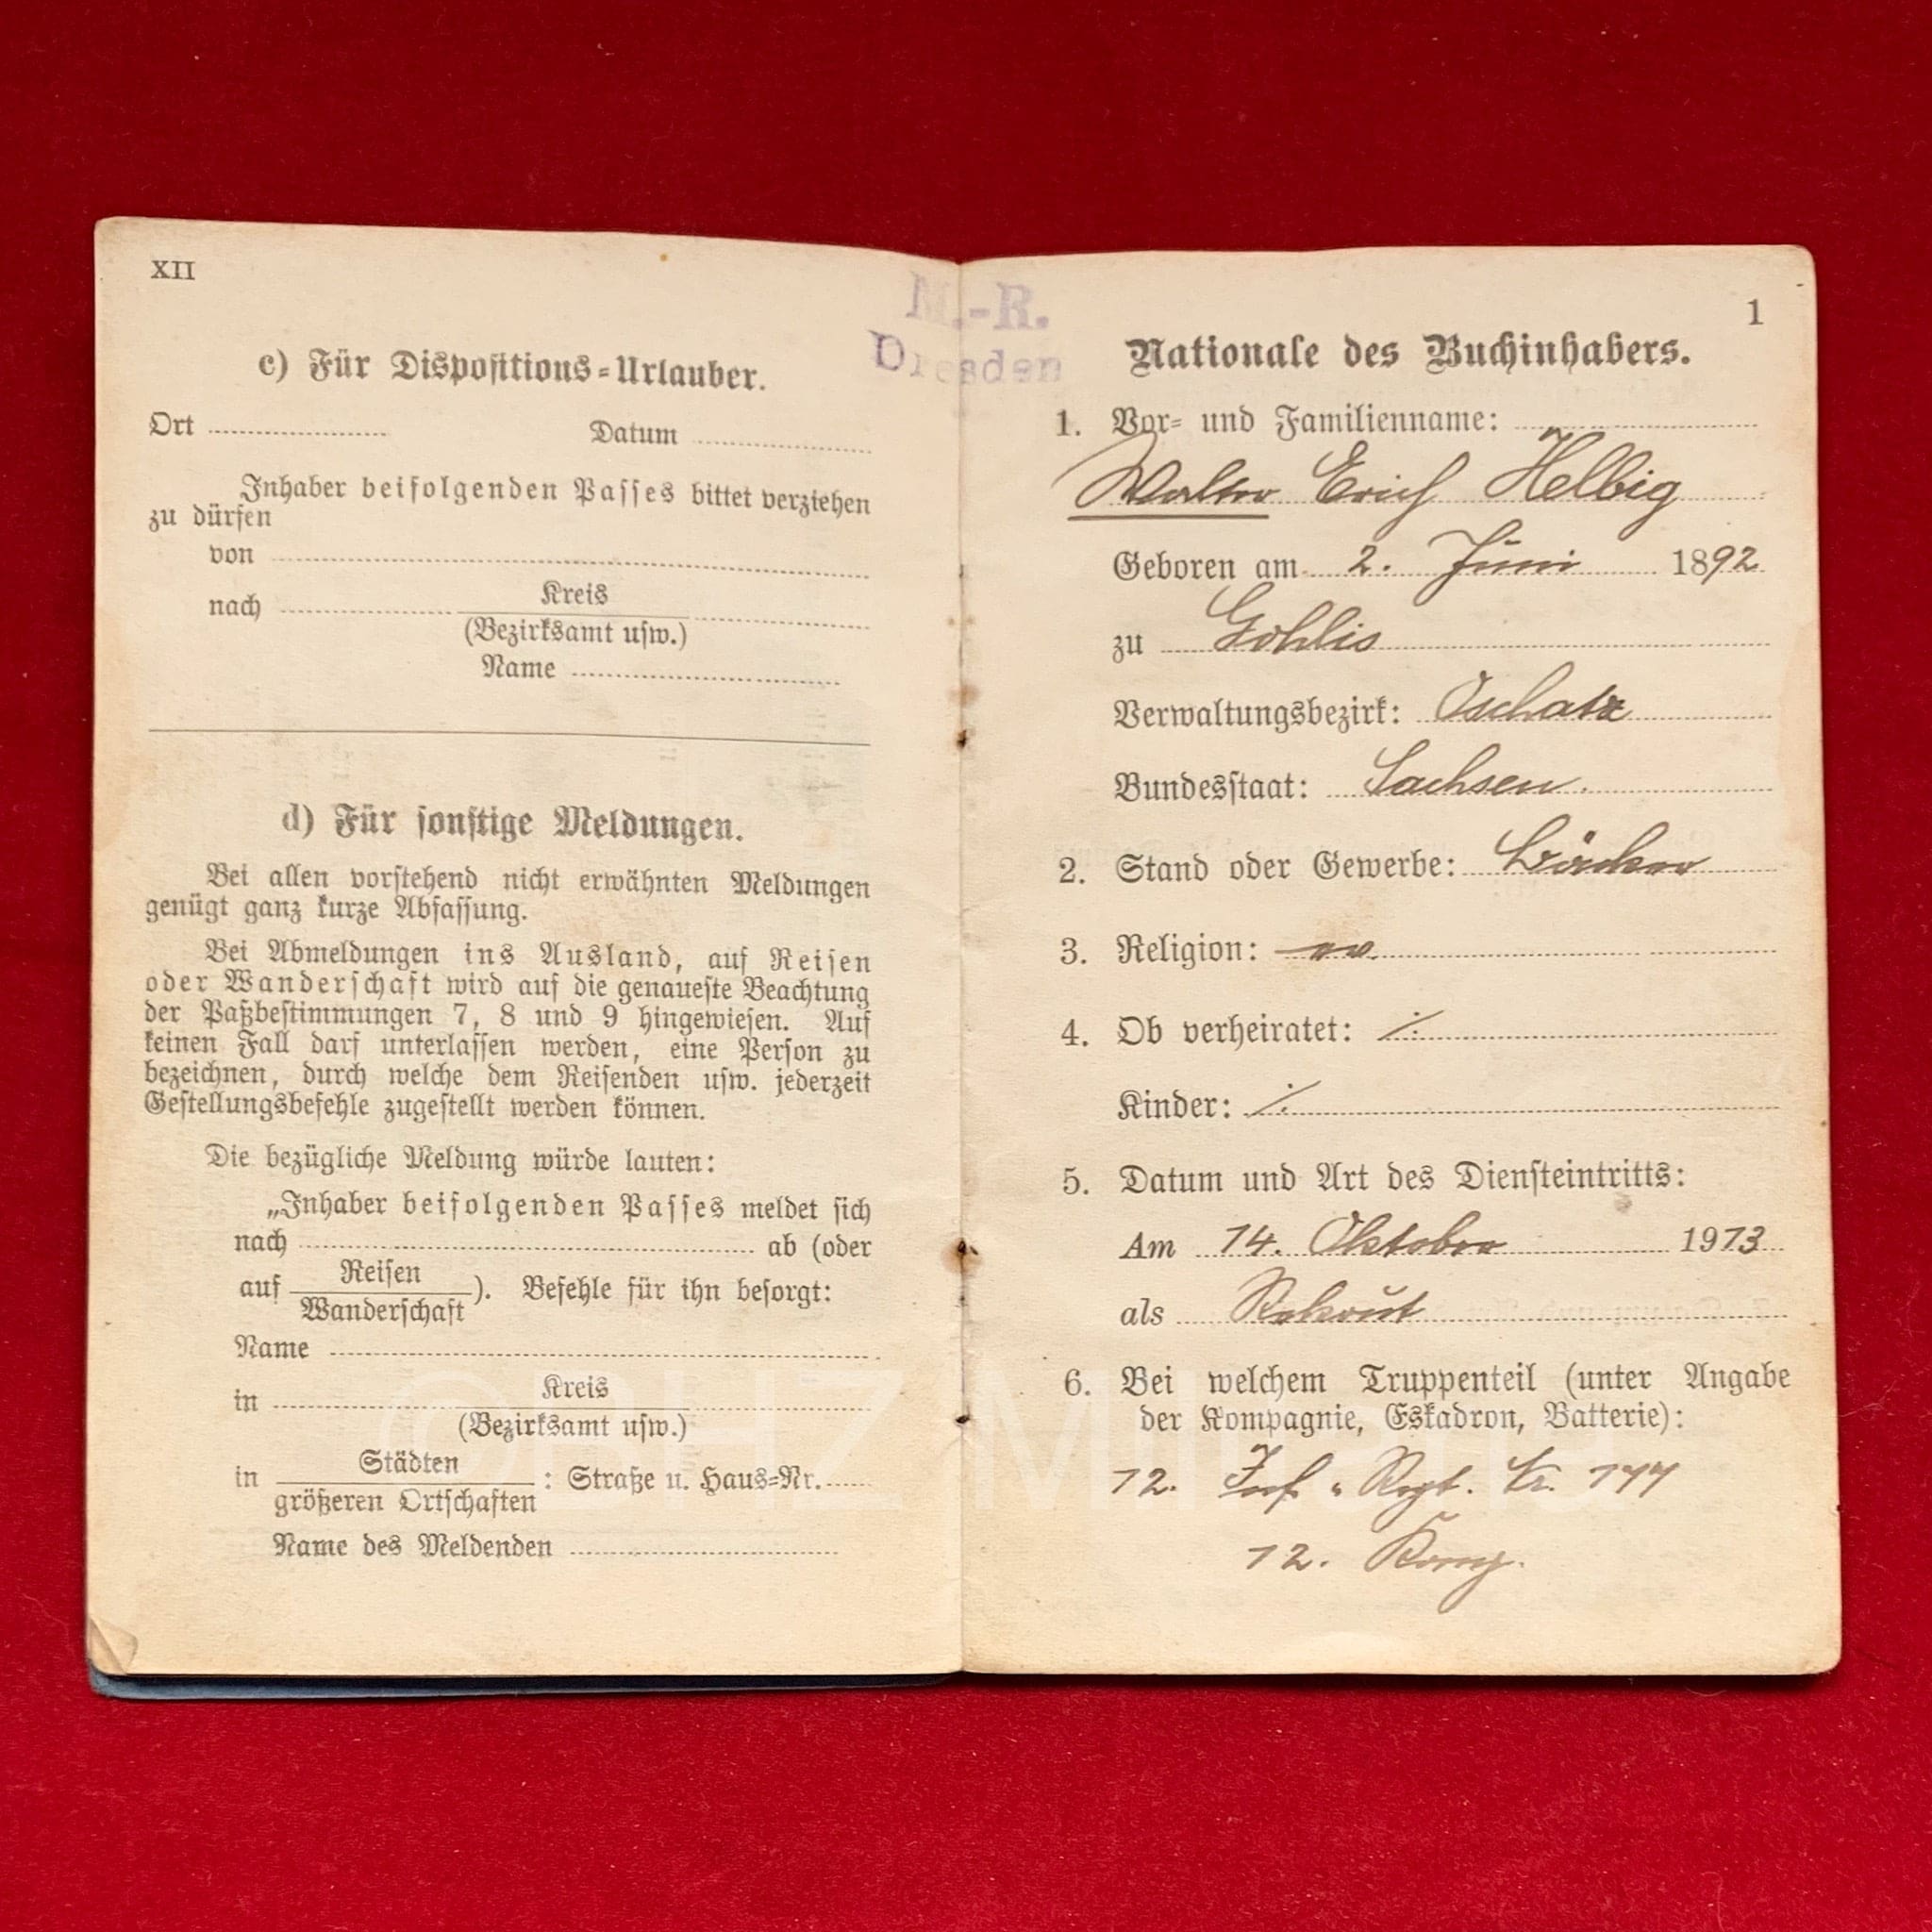 XII
c) Für Dispositions-Urlauber.
Ort Datum
Inhaber beifolgenden Passes bittet verziehen
zu dürfen
von
nach Kreis
(Bezirksamt usw.)
Name
d) Für sonstige Meldungen.
Bei allen vorstehend nicht erwähnten Meldungen
genügt ganz kurze Abfassung.
Bei Abmeldungen ins Ausland, auf Reisen
oder Wanderschaft wird auf die genaueste Beachtung
der Paßbestimmungen 7, 8 und 9 hingewiesen. Auf
keinen Fall darf unterlassen werden, eine Person zu
bezeichnen, durch welche dem Reisenden usw. jederzeit
Gestellungsbefehle zugestellt werden können.
Die bezügliche Meldung würde lauten:
„Inhaber beifolgenden Passes meldet sich
nach ab (oder
auf Reisen
Wanderschaft). Befehle für ihn besorgt:
Name
in Kreis
(Bezirksamt usw.)
in Städten
größeren Ortschaften : Straße u. Haus-Nr.
Name des Meldenden
M.-R.
Dresden
1
Nationale des Buchinhabers.
1. Vor- und Familienname:
Walter Erich Helbig
Geboren am 2. Juni 1892
zu Gohlis
Verwaltungsbezirk: Oschatz
Bundesstaat: Sachsen.
2. Stand oder Gewerbe: Bäcker
3. Religion: ev.
4. Ob verheiratet: ·/.
Kinder: ·/.
5. Datum und Art des Diensteintritts:
Am 14. Oktober 1913
als Rekrut
6. Bei welchem Truppenteil (unter Angabe
der Kompagnie, Eskadron, Batterie):
12. Inf.-Regt. Nr. 177
12. Komp.